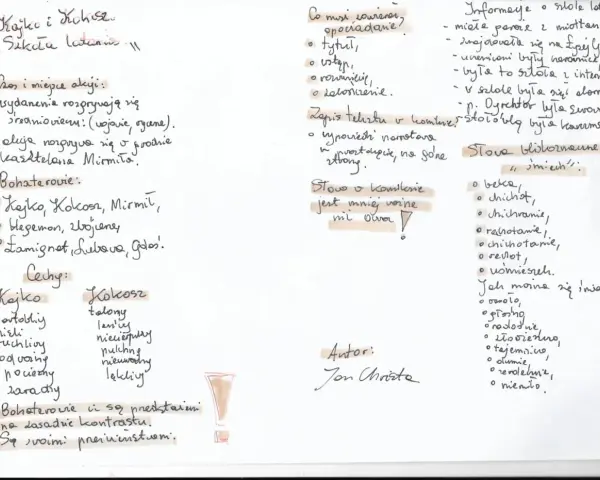 Kajko i Kokosz.
Szkoła latania "
Czas i miejsce akcji:
wydarzenia rozgrywają się
w średniowieczu: (wojowie, rycerze).
akcja rozgrywa się w grodzie
kasztelana Mirmiła.
Bohaterowie:
Kajko, Kokosz, Mirmił,
Hegemon, zbójcerze,
Łamignat, Lubawa, gdoś.
Cechy:
Kajko
ruchliwy
odważny
pocieszny
zaradny
Kokosz
łakomy
leniwy
niecierpliwy
pulchny
nieuważny
lękliwy
Bohaterowie ci są przedstawieni
na zasadzie kontrastu.
Są swoimi przeciwieństwami.
!
Co musi zawierać
opowiadanie:
tytuł,
wstęp,
rozwinięcie,
zakończenie.
Zapis tekstu w komiksie:
wypowiedzi narratora
w prostokącie, na górze
strony.
Słowo w komiksie
jest mniej ważne
niż obraz!
Autor:
Jan Christa
Informacje o szkole lat
- miała garaże z miotłam
- znajdowała się na Łysej
- uczennicami były
- była to szkoła z inter
- w szkole był
- p. Dyrektor była
- stołówką była
Słowa bliskoznaczne
"śmiech":
beka,
chichot,
chichranie,
rechotanie,
chichotanie,
rechot,
uśmieszek.
Jak można się śmia
wesoło,
głośno,
radośnie,
złośliwie,
tajemniczo,
dumnie,
serdecznie,
niemiło.